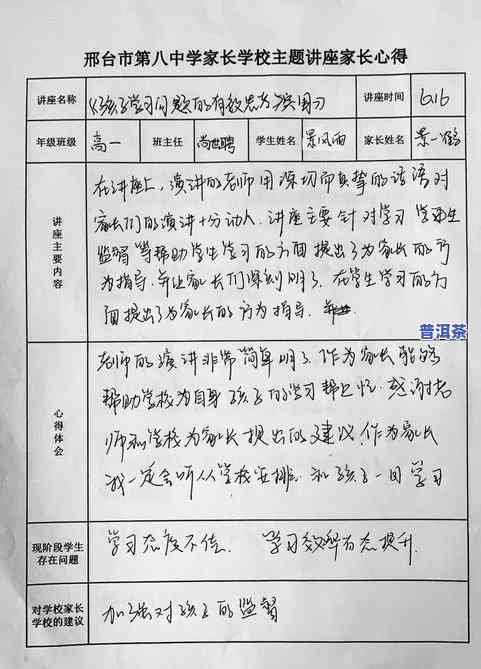 邢台市第八中学家长学校主题讲座家长心得
讲座名称 《孩子学习问题的有效思考 讲座时间 6.16
年级班级 高一 班主任 尚世聘 学生姓名 景风雨 家长姓名 景一鹤
讲座主要内容
在讲座上，演讲的老师用深切而真挚的话语对
家长们的演讲十分动人.讲座主要针对学习
监督等帮助学生学习的方面提出了为家长的行
为指导.并让家长们深刻明了.在学生学习的方
面提出了为家长的行为指导.
普洱茶
心得体会
老师的演讲非常简单明了.作为家长能够
帮助学校为自身孩子的学习帮上忙.感谢老
师和学校为家长提出的建议.作为家长
我一定会听从学校安排.和孩子一同学习
现阶段学生存在问题 学习态度不佳. 学习效率有态提升
对学校家长学校的建议 加强对孩子的监督